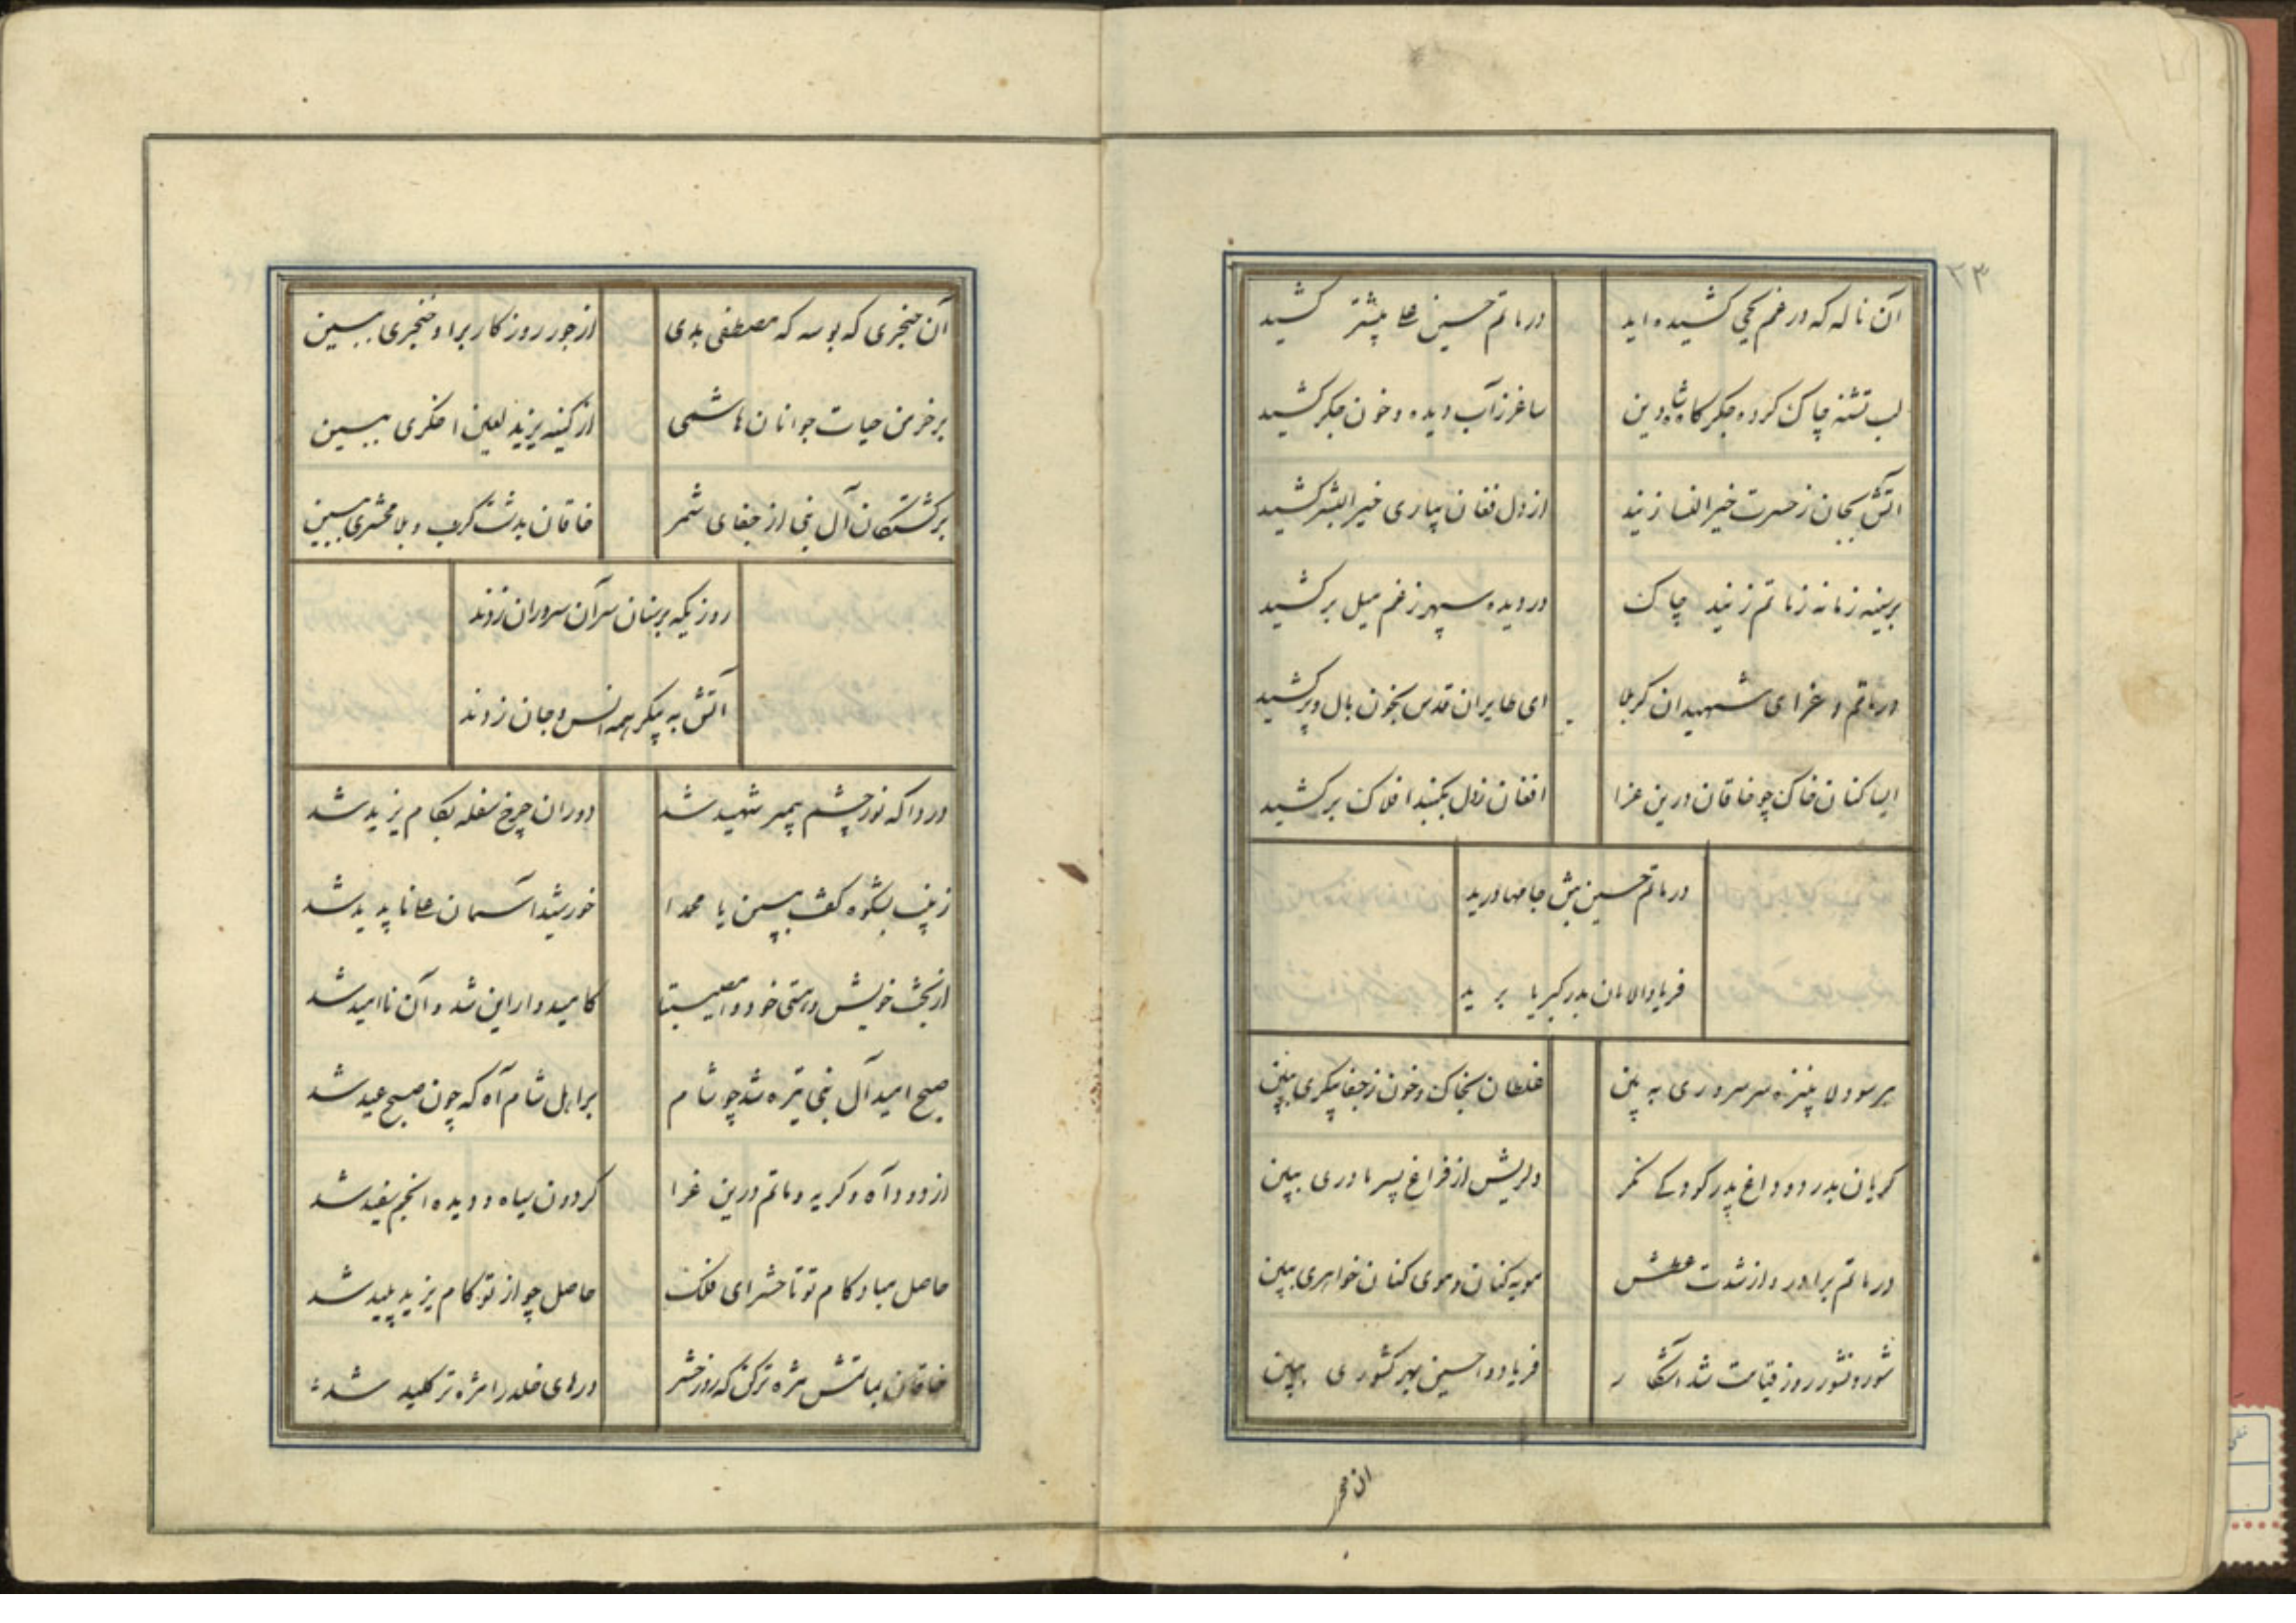 ۳۳
آن ناله که در غم یحیی کشیده اید در ماتم حسین علی بیشتر کشید
لب تشنه چاک کرده جکرکاه شاه دین ساغر ز آب دیده و خون جکر کشید
آتش بجان ز حسرت خیر النسا زنید از دل فغان بیاری خیر البشر کشید
بر سینه زمانه ز ماتم زنید چاک در دیده سپهر ز غم میل بر کشید
در ماتم و عزای شهیدان کربلا ای طایران قدس بخون بال و پر کشید
ایسا کنان خاک چو خاقان درین عزا افغان ز دل بکنبد افلاک بر کشید
در ماتم حسین بتن جامها درید
فریاد الامان بدر کبریا برید
هر سو دلا بنیزه سر سروری به بین غلطان بخاک و خون ز جفا پیکری ببین
کریان بدرد و داغ پدر کودکی نکر دلریش از فراغ پسر مادری ببین
در ماتم برادر و از شدت عطش مویه کنان و موی کنان خواهری ببین
شور و نشور روز قیامت شد آشکار فریاد واحسین بهر کشوری ببین
آن حنجری که بوسه که مصطفی بدی از جور روزکار براو خنجری ببین
بر خرمن حیات جوانان هاشمی از کینه یزید لعین اخکری ببین
بر کشتکان آل نبی از جفای شمر خاقان بدشت کرب و بلا محشری ببین
روزیکه بر سنان سر آن سروران زدند
آتش به پیکر همه انس و جان زدند
دردا که نور چشم پیمبر شهید شد دوران چرخ سفله بکام یزید شد
زینب بشکوه کفت ببین یا محمدا خورشید آسمان علی ناپدید شد
از بخت خویش و هستی خود وامصیبتا کامیدوار این شد و آن ناامید شد
صبح امید آل نبی تیره شد چو شام بر اهل شام آه که چون صبح عید شد
از دود آه و کریه و ماتم درین عزا کردون سیاه و دیده انجم سفید شد
حاصل مباد کام تو تا حشر ای فلک حاصل چو از تو کام یزید پلید شد
خاقان بماتمش مژه تر کن که روز حشر درهای خلد را مژه تر کلید شد